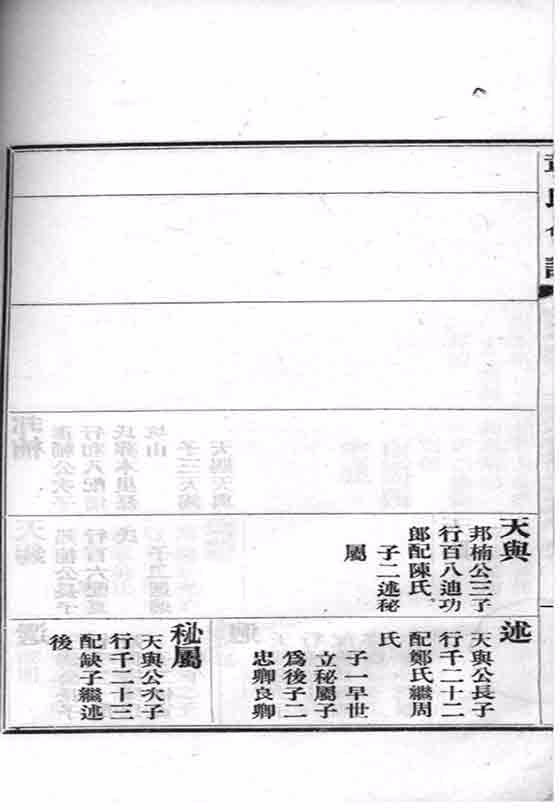 天與
邦楠公三子
行百八迪功
郎配陳氏
子二述秘
屬
述
天與公長子
行千二十二
配鄭氏繼周
氏
子一早世
立秘屬子
爲後子二
忠卿良卿
秘屬
天與公次子
行千二十三
配缺子繼述
後